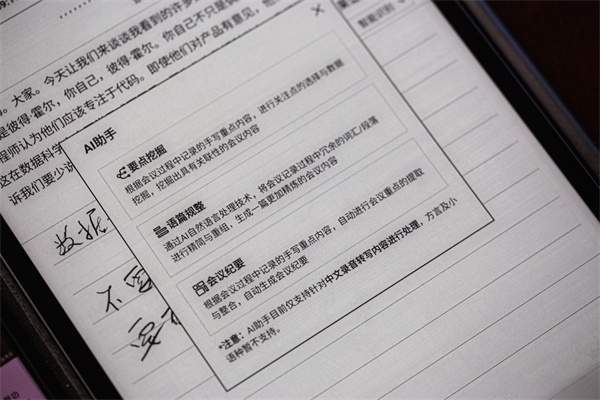 大家。今天让我们来谈谈我看到的许多
是彼得·霍尔，你自己，彼得·霍尔。你自己不只是
程师认为他们应该专注于代码。即使他们对产品有意见，他
这在数据科学
诉我们要少说
智能识别
AI助手
要点挖掘
根据会议过程中记录的手写重点内容，进行关注点的选择与数据
挖掘，挖掘出具有关联性的会议内容
语篇规整
通过AI自然语言处理技术，将会议记录过程中冗余的词汇/段落
进行精简与重组，生成一篇更加精炼的会议内容
会议纪要
根据会议过程中记录的手写重点内容，自动进行会议重点的提取
与整合，自动生成会议纪要
*注意：AI助手目前仅支持针对中文录音转写内容进行处理，方言及小
语种暂不支持。